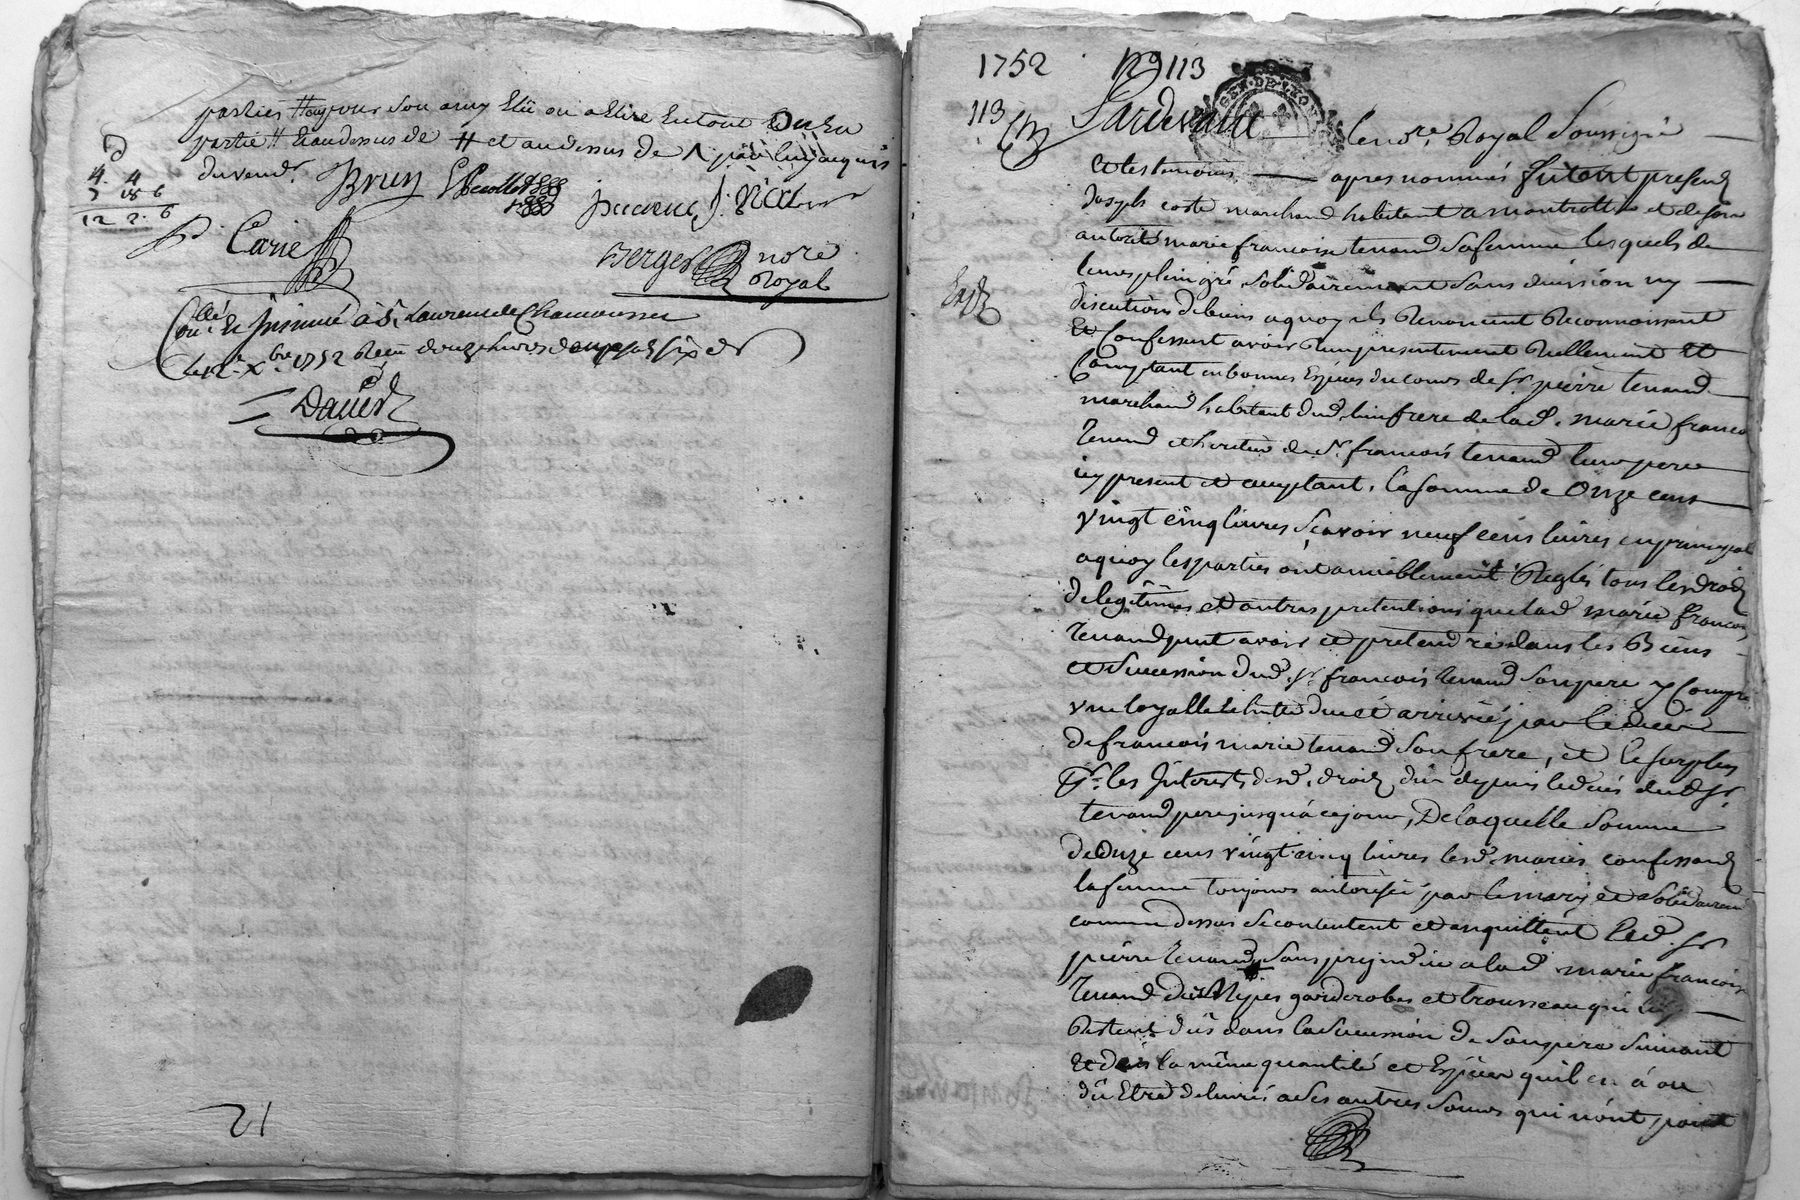 parties # ou pour son amy Elû ou a Elire En tout Ou En
partie # Et au dessus de # et au dessus de
du vend.r
4. 4
7 18 6
12 2. 6
Brun
Carie
Berger nore
Royal
Collé Et Jnsinué à St Laurens de Chamousset
Le 12e Xbre 1752 Reçu douze livres deux sols six drs
Dauer
21
1752 No 113
113
Par devant le nore Royal Soussigné
Et les temoins apres nommés furent presens
Joseph coste marchand habitant a montrottier et de son
autorité marie francoise tenand sa femme lesquels de
leurs plein gré solidairement sans division ny
discution de biens a quoy ils Renoncent Reconnoissent
Et Confessent avoir Reçu presentement Reellement Et
Comptant en bonnes Espèces du cours de Sr pierre tenand
marchand habitant dud. lieu frere de lad. marie franco
Tenand et heritier de Sr francois tenand leur pere
icy present et comptant, la somme de Onze cens
vingt cinq livres Sçavoir neuf cens livres en principal
a quoy les parties ont amiablement Reglés tous les droits
de legitimes et autres pretentions que lad marie francoise
Tenand peut avoir et pretendre dans les Biens
et succession dud. Sr francois Tenand son pere y Compris
une loyalle Echutte due et arrivée par le deces
de francois marie tenand son frere, et le surplus
pr. les Jnterests desd. droits dûs depuis le deces dud Sr
tenand pere jusqu'a ce jour, De laquelle somme
de Onze cens vingt cinq livres lesd. mariés confessants
la femme toujours autorisée par le mary et solidairement
comme dessus se contentent et en quittent led. Sr
pierre Tenand, sans prejudice a lad marie francoise
Tenand des Nipes garderobes et trousseau qui luy
Restent dûs dans la succession de son pere suivant
Et dans la même quantité et Espèces qu'il en a ou
dû Etre delivrés a ses autres sœurs qui n'ont point